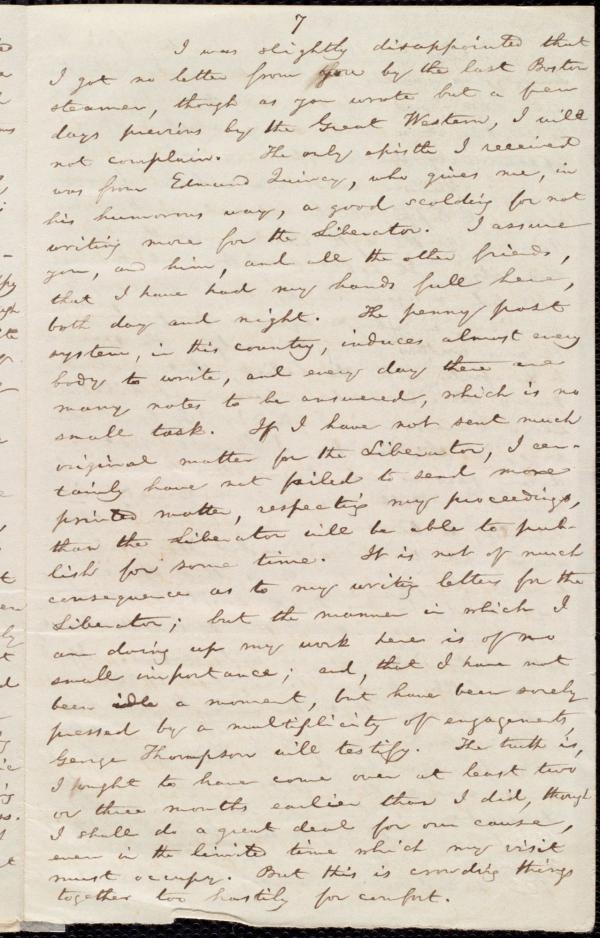 7
I was slightly disappointed that
I got no letter from you by the last Boston
steamer, though as you wrote but a few
days previous by the Great Western, I will
not complain. The only epistle I received
was from Edmund Quincy, who gives me, in
his humorous way, a good scolding for not
writing more for the Liberator. I assure
you, and him, and all the other friends,
that I have had my hands full here,
both day and night. The penny post
system, in this country, induces almost every
body to write, and every day there are
many notes to be answered, which is no
small task. If I have not sent much
original matter for the Liberator, I cer-
tainly have not failed to send more
printed matter, respecting my proceedings,
than the Liberator will be able to pub-
lish for some time. It is not of much
consequence as to my writing letters for the
Liberator; but the manner in which I
am doing up my work here is of no
small importance; and, that I have not
been idle a moment, but have been sorely
pressed by a multiplicity of engagements
George Thompson will testify. The truth is,
I ought to have come over at least two
or three months earlier than I did, though
I shall do a great deal for our cause,
even in the limited time which my visit
must occupy. But this is crowding things
together too hastily for comfort.